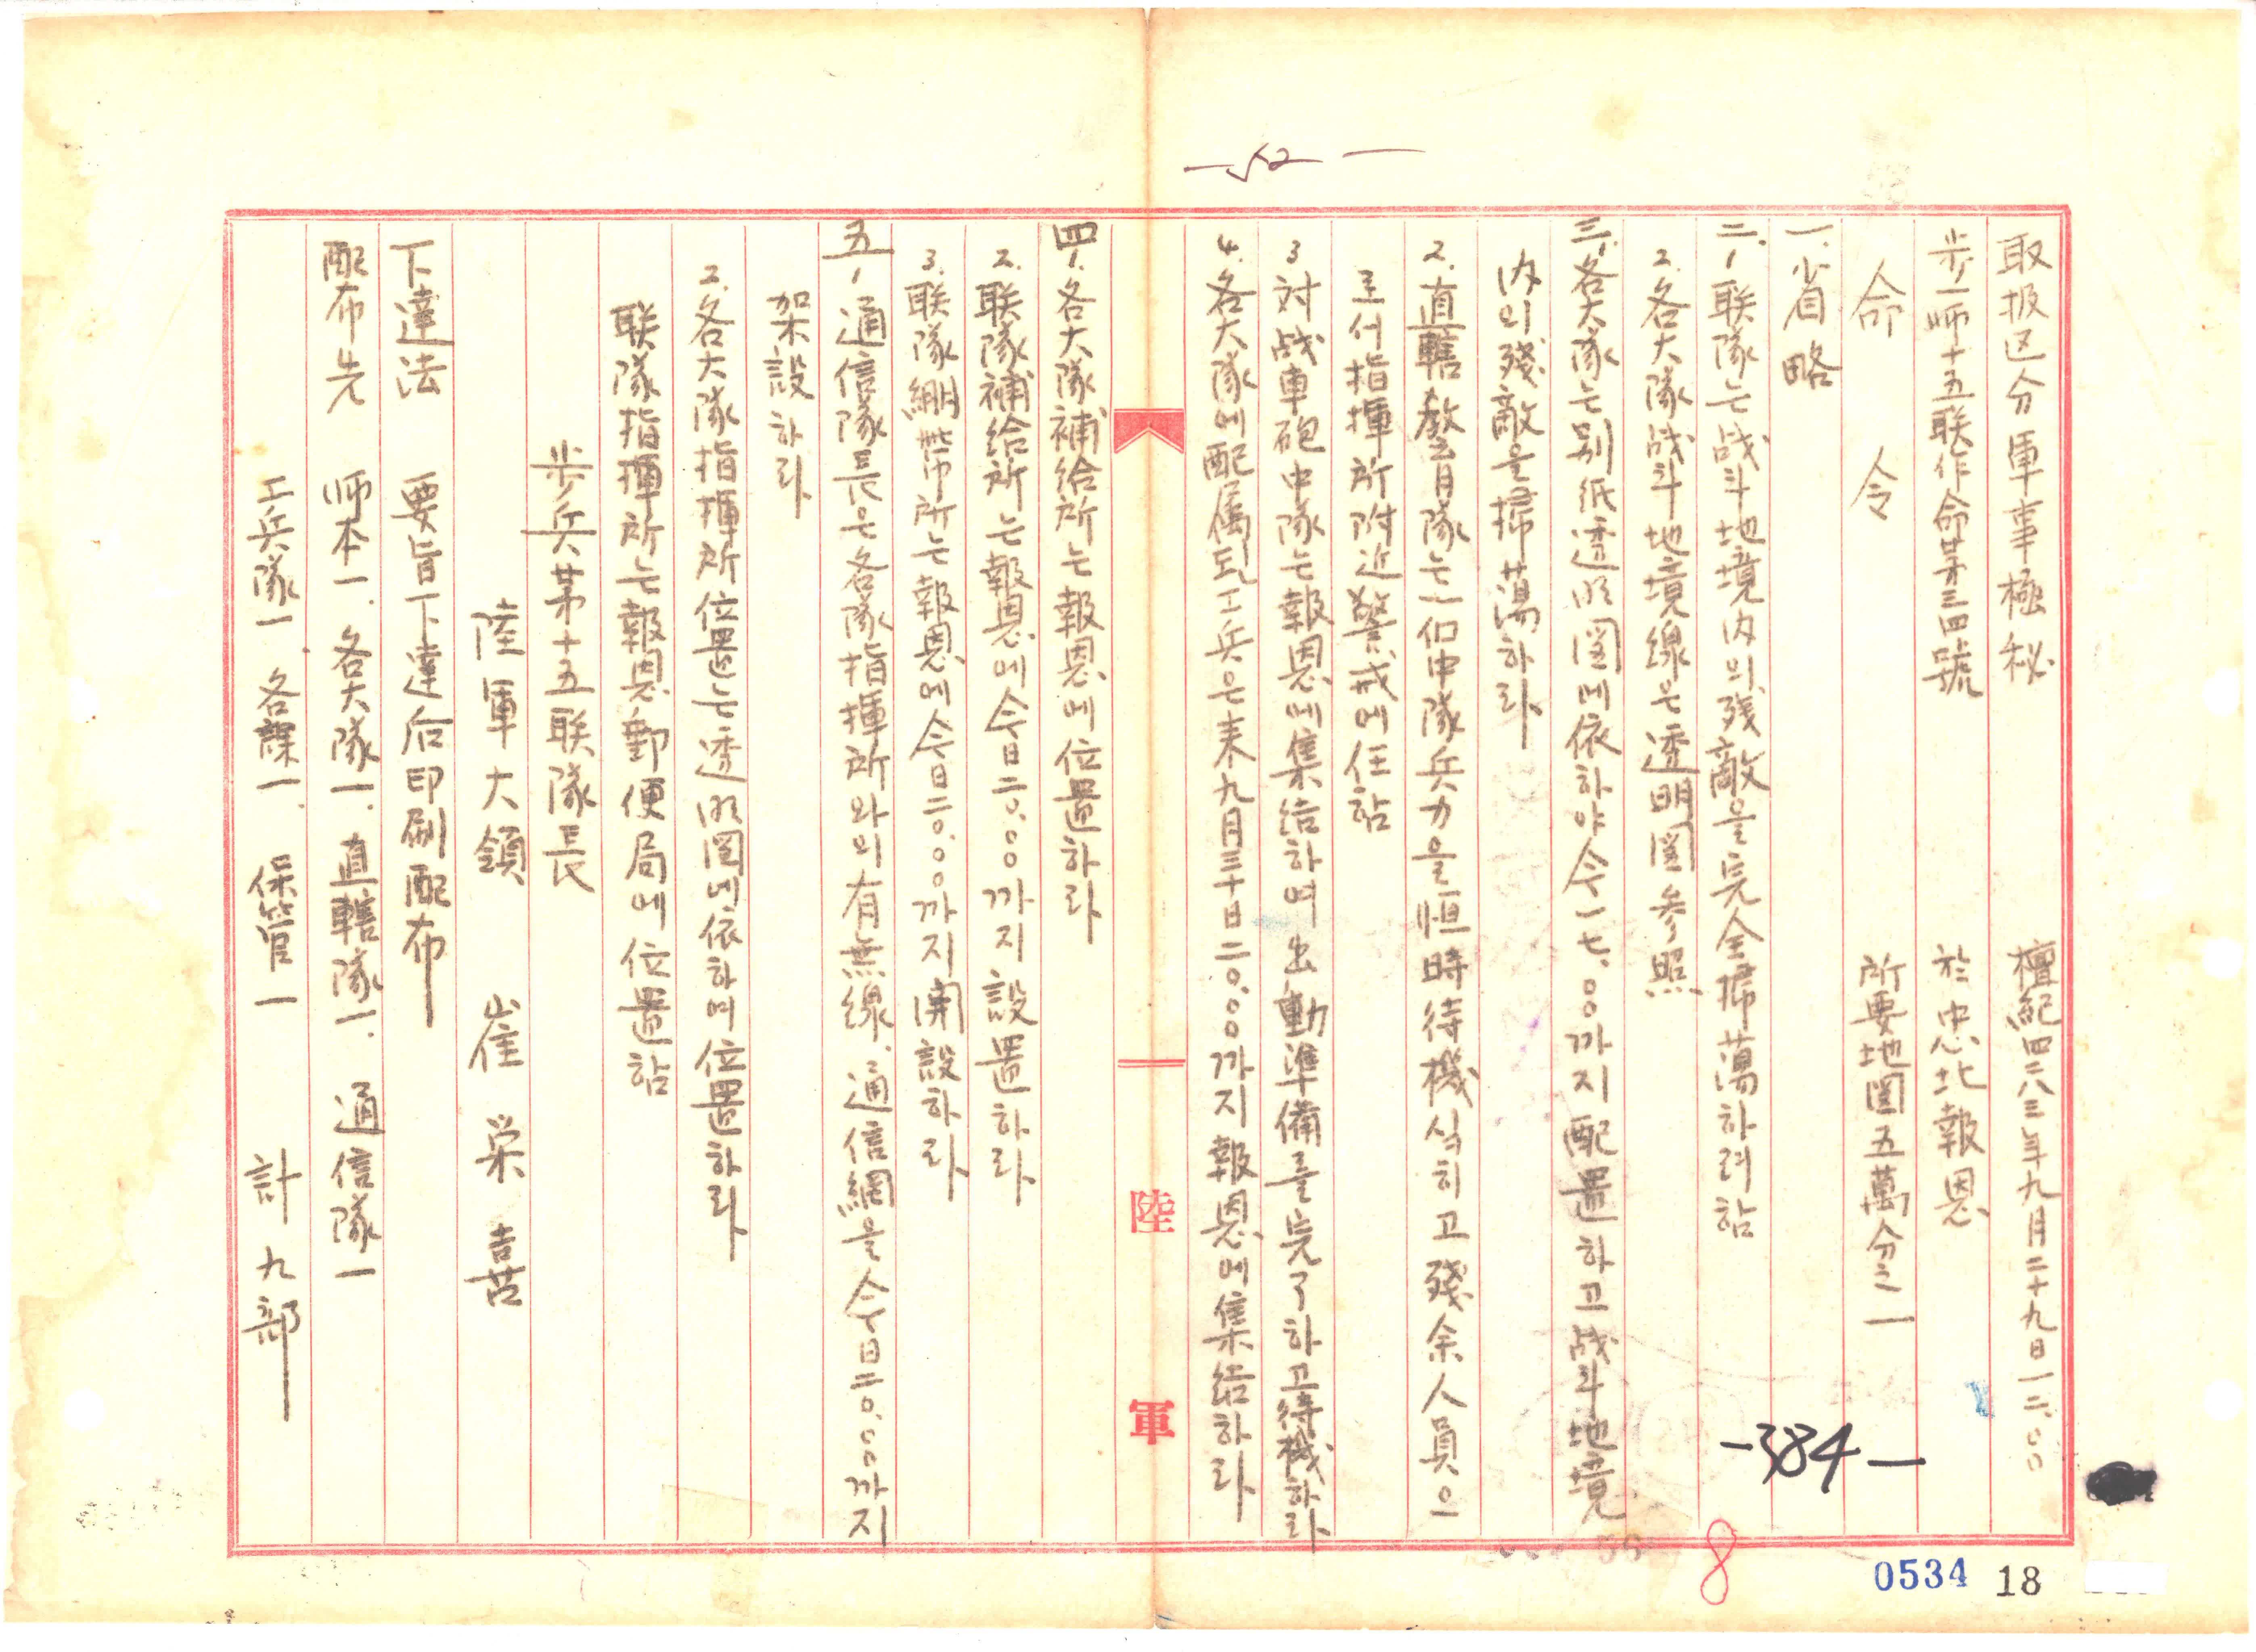 —52—
取扱区分 軍事極秘 檀紀四二八三年九月二十九日一二.〇〇
步一師十五联作命第三四號 於忠北報恩
命令 所要地図五萬分之一
一.省略
二.1 联隊는战斗地境內의残敵을完全掃蕩하려함
2.各大隊战斗地境線은透明図参照
三.1.各大隊는別紙透明図에依하야今一七.〇〇까지配置하고战斗地境
內의残敵을掃蕩하라
2.直轄警備隊는一個中隊兵力을恒時待機식히고残余人員으
로서指揮所附近警戒에任함
3 対战車砲中隊는報恩에集結하여出動準備를完了하고待機하라
4.各大隊에配属된工兵은来九月三十日二〇.〇〇까지報恩에集結하라
四.1.各大隊補給所는報恩에位置하라
2.联隊補給所는報恩에今日二〇.〇〇까지設置하라
3.联隊繃帯所는報恩에今日二〇.〇〇까지開設하라
五.1 通信隊長은各隊指揮所와의有無線.通信網을今日二〇.〇〇까지
架設하라
2.各大隊指揮所位置는透明図에依하여位置하라
联隊指揮所는報恩郵便局에位置함
步兵第十五联隊長
陸軍大領 崔栄喜
下達法 要旨下達后印刷配布
配布先 师本一. 各大隊一. 直轄隊一. 通信隊一
工兵隊一 各課一. 保管一 計九部
陸軍
—384—
8
0534 18